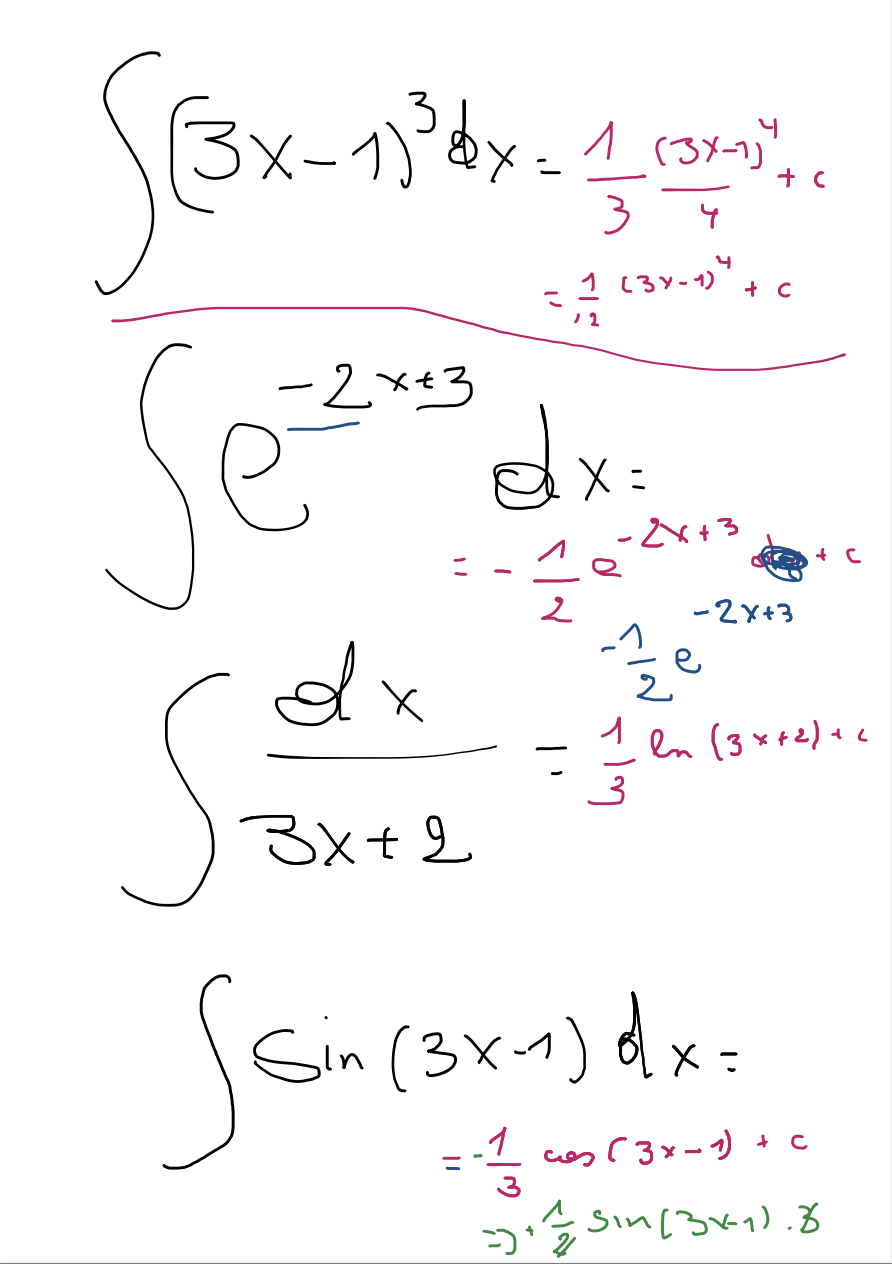 ∫(3x-1)³dx = 1/3 (3x-1)⁴/4 + c
= 1/12 (3x-1)⁴ + c
∫e^(-2x+3) dx =
= -1/2 e^(-2x+3) + c
-1/2 e^(-2x+3)
∫dx/(3x+2) = 1/3 ln(3x+2) + c
∫sin(3x-1)dx =
= -1/3 cos(3x-1) + c
=> +1/3 sin(3x-1).3